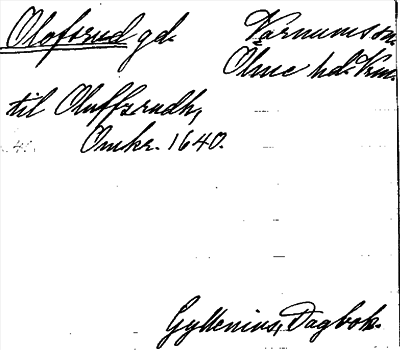 Olofsrud gd. Varnums sn.
Ölme hd. Vrm.
til Oluffzrudh,
Omkr. 1640.
Gyllenius, Dagbok.